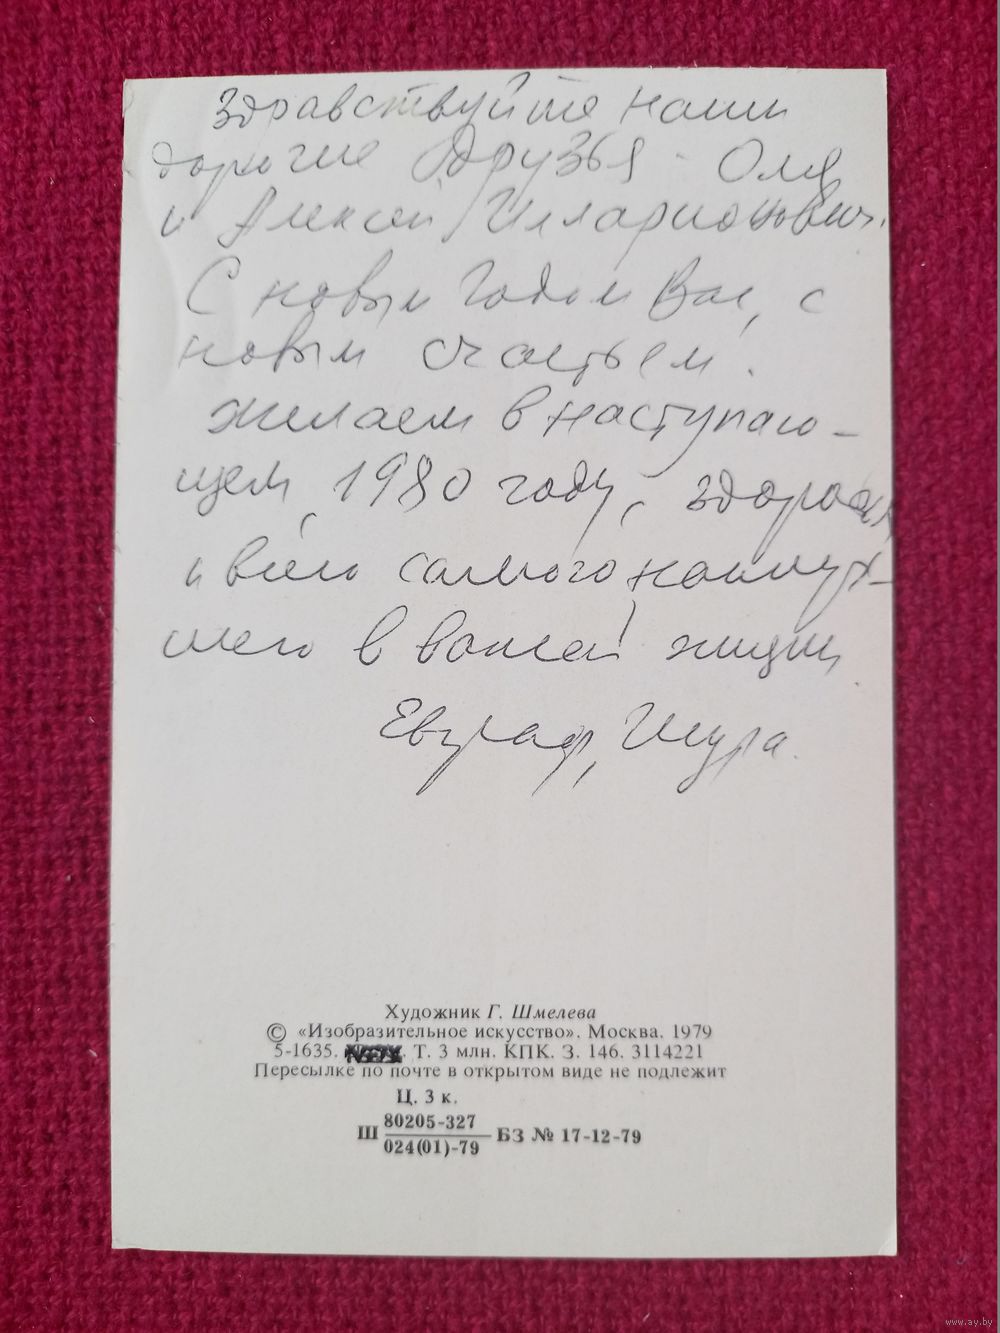 Здравствуйте наши
дорогие друзья - Оля
и Алексей Илларионович.
С новым Годом Вас, с
новым счастьем.
Желаем в наступаю-
щем, 1980 году, здоровья
и всего самого наилуч-
шего в вашей жизни
Евграф, Шура.
Художник Г. Шмелева
© «Изобразительное искусство». Москва. 1979
5-1635. . Т. 3 млн. КПК. З. 146. 3114221
Пересылке по почте в открытом виде не подлежит
Ц. 3 к.
Ш 80205-327 БЗ № 17-12-79
024(01)-79
www.ay.by